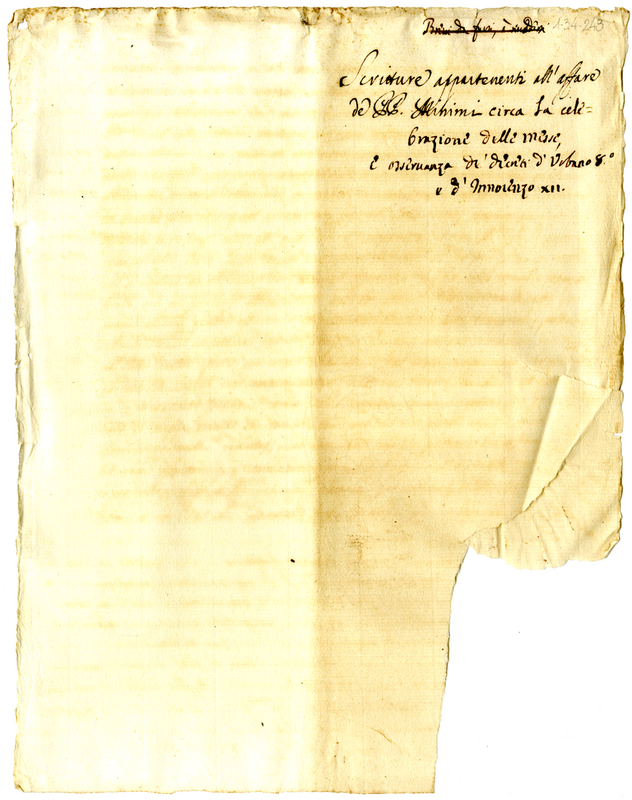 134-243
Scritture appartenenti all'affare
de' PP. Minimi circa la cele=
brazione delle Messe,
e osservanza di' decreti d' Urbano 8.º
e d' Innocenzo XII.